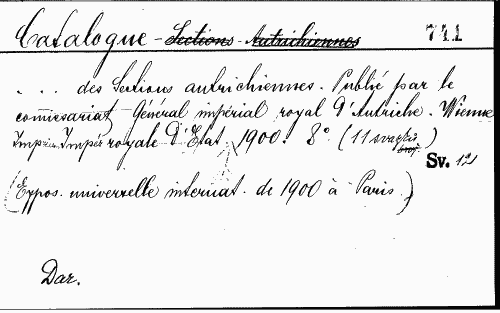 Catalogue - Sections Autrichiennes 741
. . . des Sections autrichiennes. Publié par le
comissariat Général impérial royal d'Autriche. Wienne
Impér. royale d'Etat, 1900. 8° (11 svazků)
Sv. 12
(Expos. universelle internat. de 1900 à Paris.)
Dar.